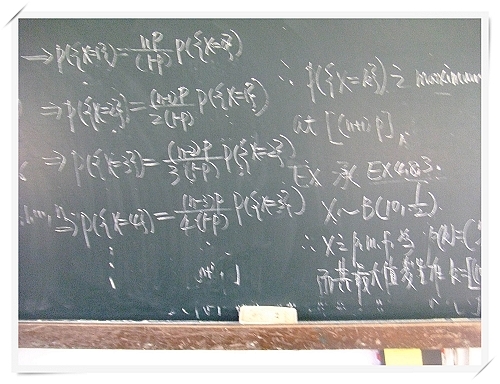 ⇒ P({X=1}) = np/(1-p) P({X=0})
⇒ P({X=2}) = (n-1)p/2(1-p) P({X=1})
⇒ P({X=3}) = (n-2)p/3(1-p) P({X=2})
⇒ P({X=4}) = (n-3)p/4(1-p) P({X=3})
∴ P({X=k}) 之 maximum
at [(n+1)p]
EX 承 EX4.8.3.
X~B(10, 1/2).
∴ X之 p.m.f. 為
而其最大值發生在 k=[